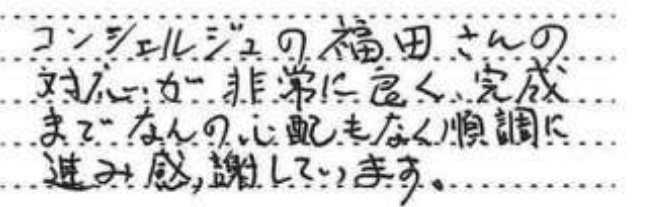 コンシェルジュの福田さんの
対応が非常に良く、完成
までなんの心配もなく順調に
進み感謝しています。